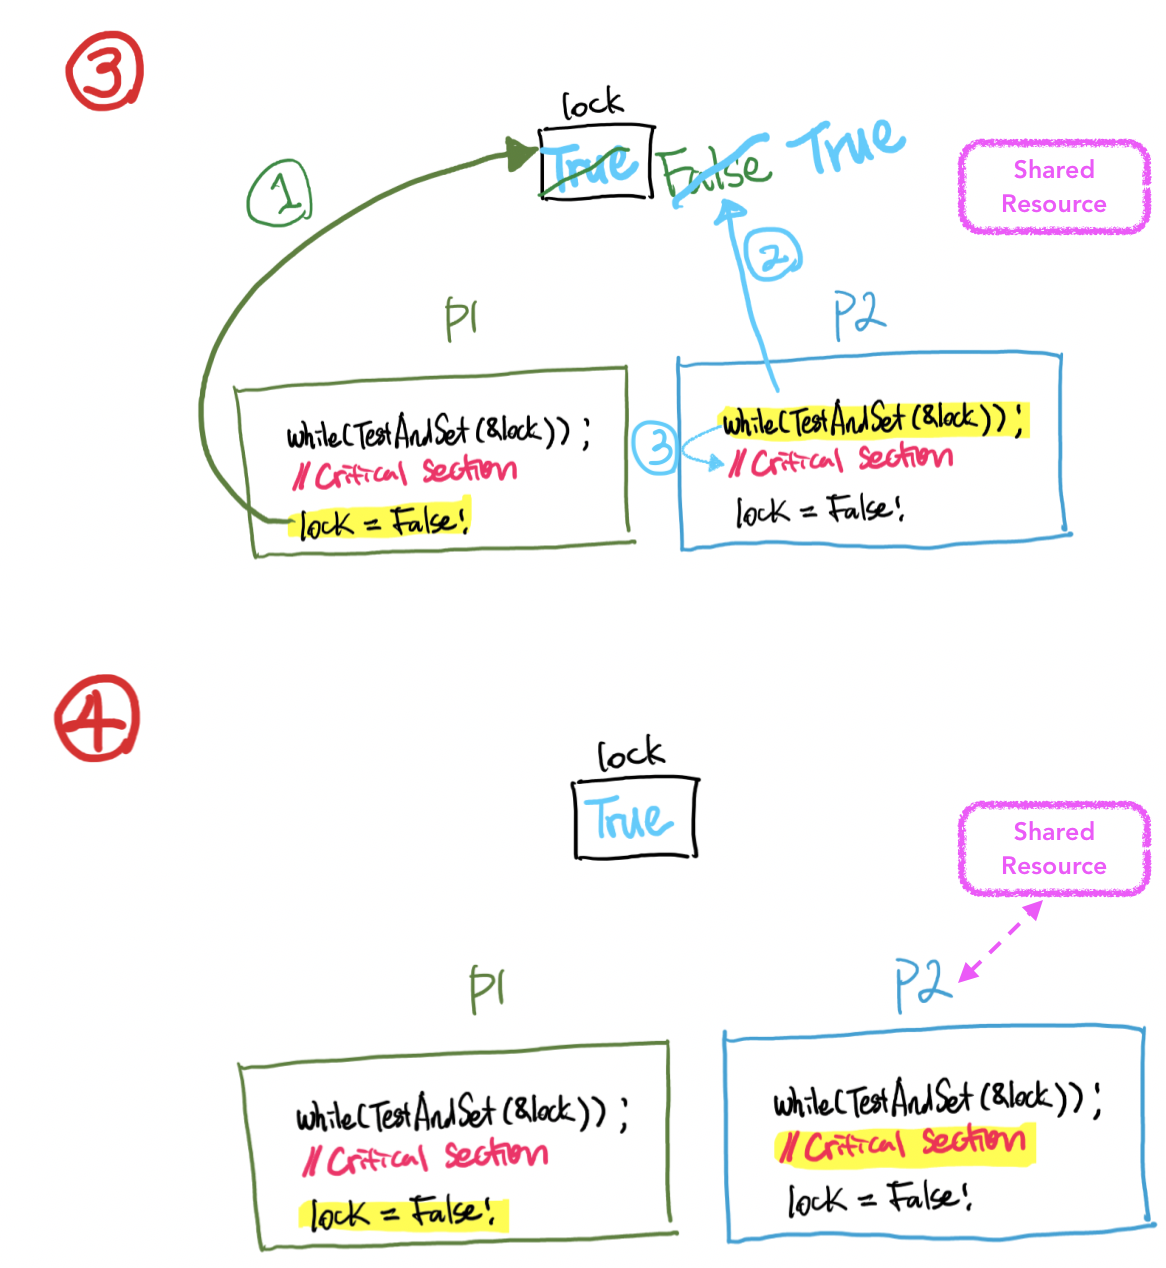 ③
lock
True False True
Shared
Resource
①
②
P1
P2
while(TestAndSet(&lock));
// Critical section
lock = False;
③
while(TestAndSet(&lock));
// Critical section
lock = False;
④
lock
True
Shared
Resource
P1
P2
while(TestAndSet(&lock));
// Critical section
lock = False;
while(TestAndSet(&lock));
// Critical section
lock = False;